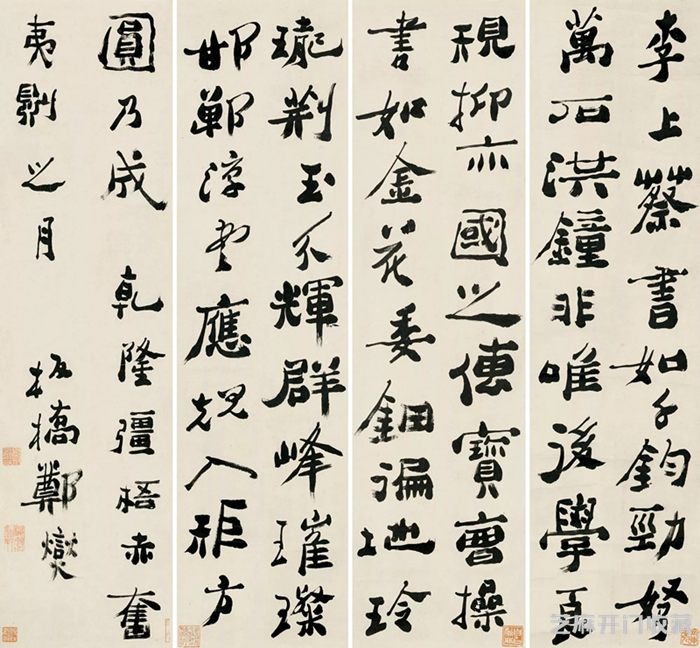 李上蔡書如千鈞勁弩
萬石洪鐘非唯後學
抑亦國之傳寶曹操
書如金花委鈿遍地玲
瓏荊玉分輝群峰璀璨
邯鄲淳書應規入矩方
圓乃成 乾隆彊梧赤奮
夷則之月
板橋鄭燮
芝麻开门收藏